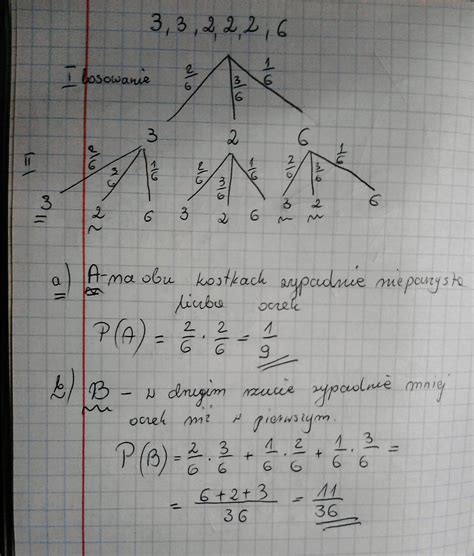 3, 3, 2, 2, 2, 6
I losowanie 2/6 3/6 1/6
3 2 6
II 2/6 3/6 1/6 2/6 3/6 1/6 2/6 3/6 1/6
3 2 6 3 2 6 3 2 6
a) A - na obu kostkach wypadnie nieparzysta
liczba oczek
P(A) = 2/6 · 2/6 = 1/9
b) B - w drugim rzucie wypadnie mniej
oczek niż w pierwszym.
P(B) = 2/6 · 3/6 + 1/6 · 2/6 + 1/6 · 3/6 =
= 6+2+3/36 = 11/36